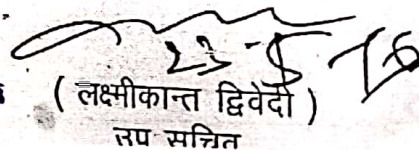 23-5-16
( लक्ष्मीकान्त द्विवेदी )
उप सचिव